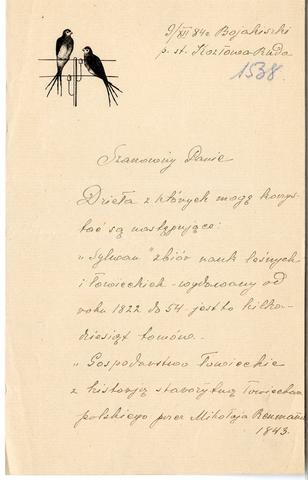 9/XII 84 r Bojakiszki
p. st. Kozłowa-Ruda
1538.
Szanowny Panie
Dzieła z których mogę korzys-
tać są następujące:
„Sylwan" zbiór nauk leśnych
i łowieckich - wydawany od
roku 1822 do 54. jest to kilka-
dziesiąt tomów.
„Gospodarstwo Łowieckie
z historją starożytną Łowiectwa
polskiego przez Mikołaja Reumanna
1843.